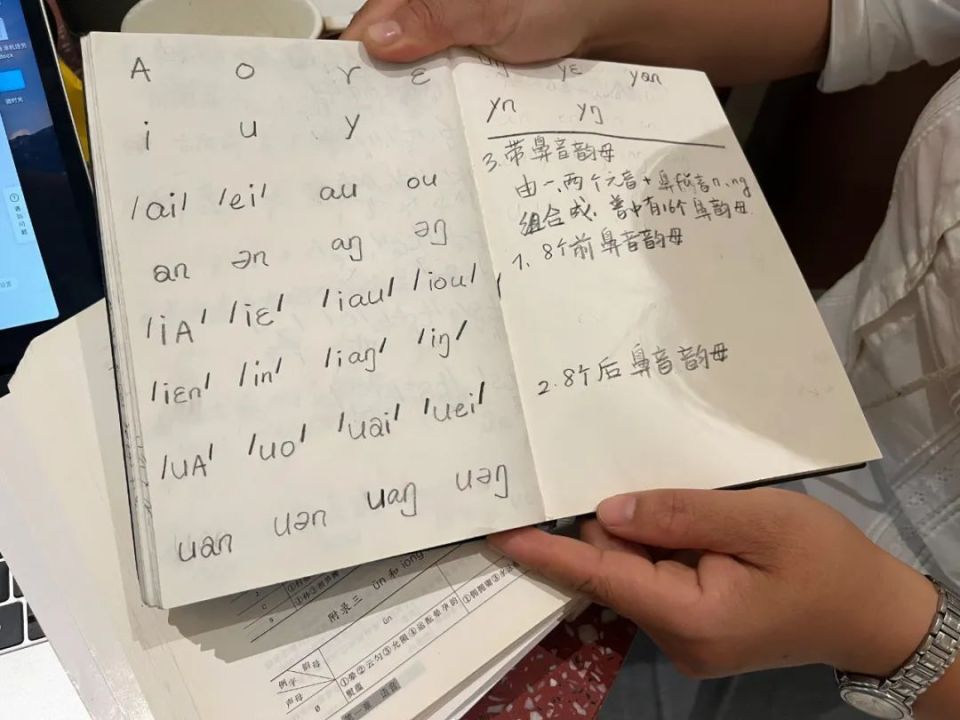 A o ɤ ɛ
i u y
/ai/ /ei/ au ou
an ən aŋ əŋ
/iA/ /iɛ/ /iau/ /iou/
/iɛn/ /in/ /iaŋ/ /iŋ/
/uA/ /uo/ /uai/ /uei/
uan uən uaŋ uəŋ
uŋ yɛ yan
yn yŋ
3.带鼻音韵母
由一、两个元音+鼻辅音n、ng
组合成,普中有16个鼻韵母
1.8个前鼻音韵母
2.8个后鼻音韵母
附录三 ün 和 iong
ün
韵母
例字
声母
0
①晕②云匀③允陨④运酝晕孕韵